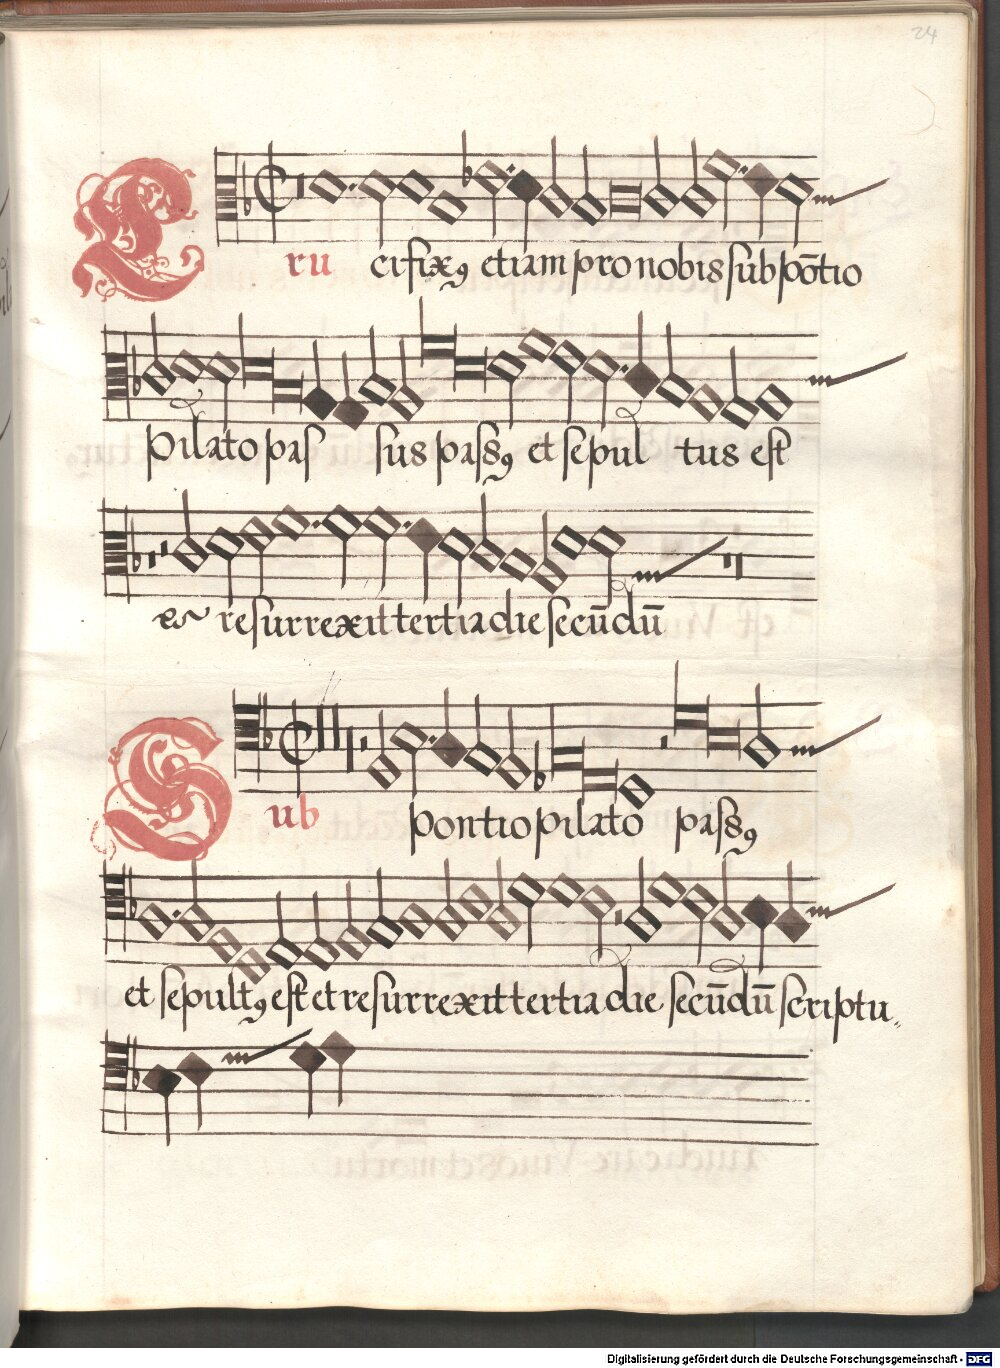 24
Cru cifixꝰ etiam pro nobis sub pōtio
pilato pas sus passꝰ et sepul tus est
et resurrexit tertia die secūdū
Sub pontio pilato passꝰ
et sepultꝰ est et resurrexit tertia die secūdū scriptu
Digitalisierung gefördert durch die Deutsche Forschungsgemeinschaft - DFG